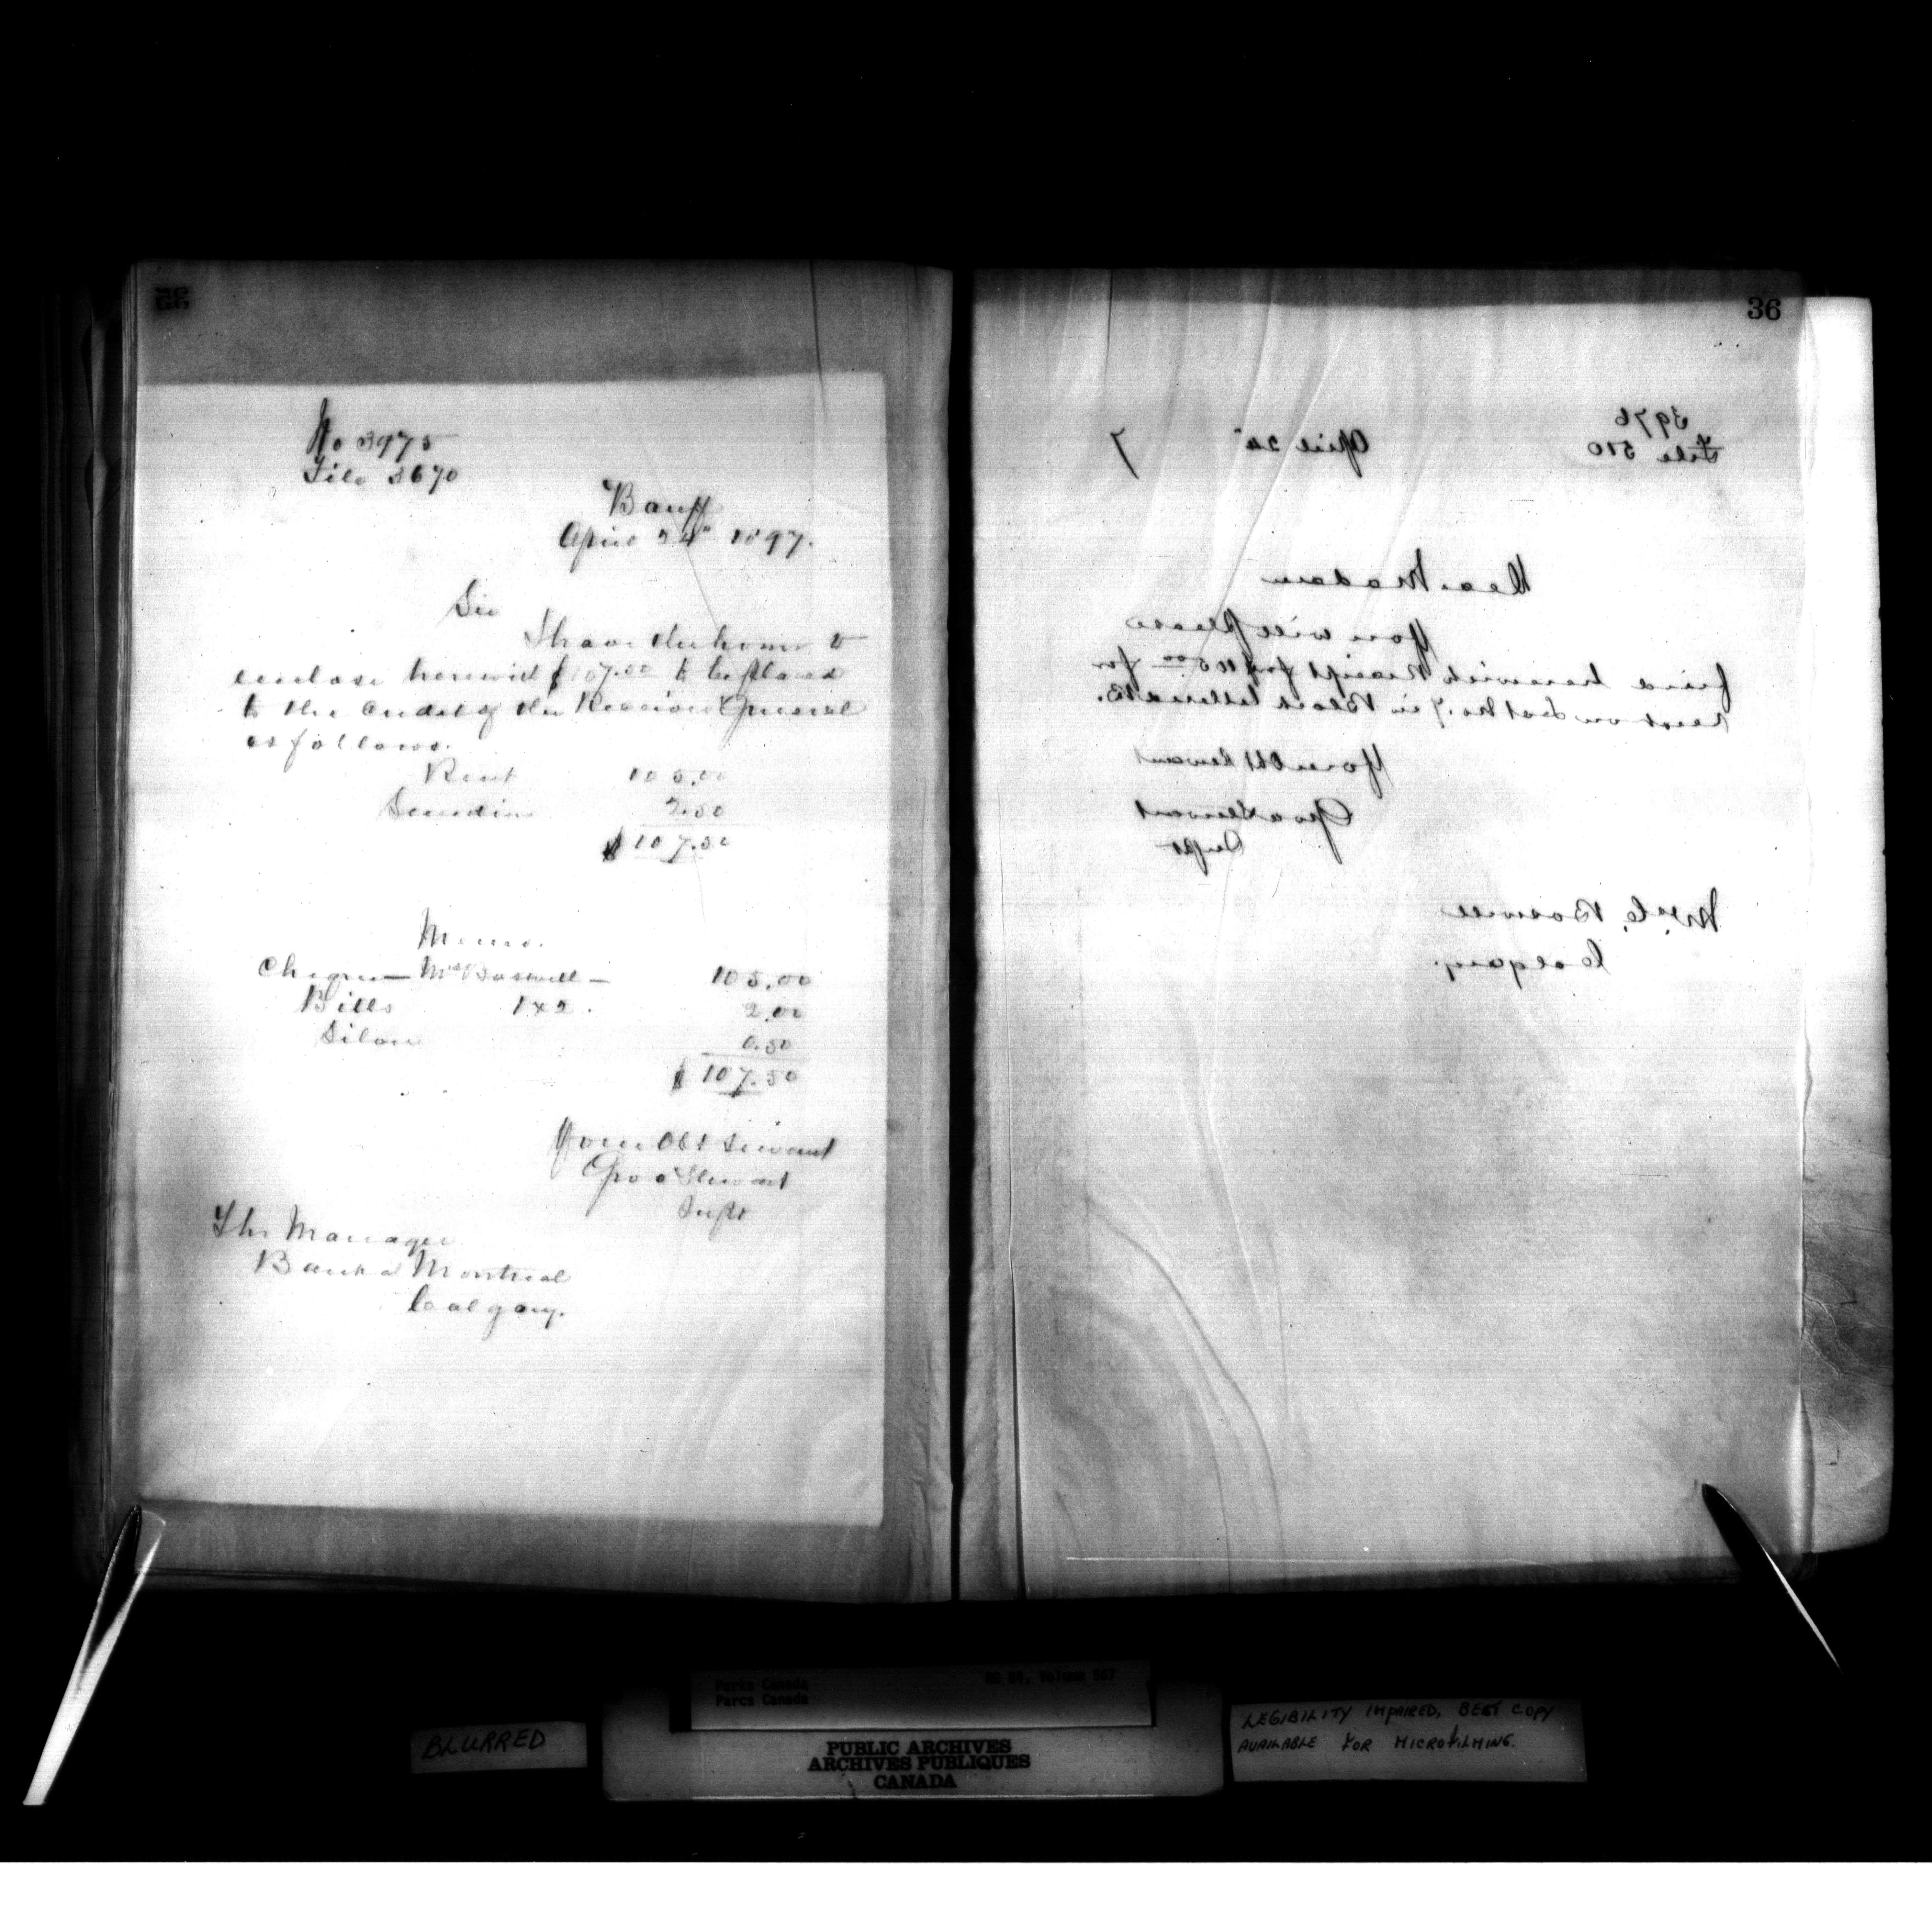 No 3975
File 3670
Banff
April 24" 1897.
Sir
I have the honor to
enclose herewith $107.00 to be placed
to the Credit of the Receiver General
as follows.
Rent 105.00
Sundries 2.50
$107.50
Memo.
Cheque — Mrs Boswell — 105.00
Bills 1x2. 2.00
Silver 0.50
$107.50
Your Obt Servant
Geo A Stewart
Supt
The Manager
Bank of Montreal
Calgary.
36
3976
File 510 April 24" 7
Dear Madam
You will please
find herewith Receipt for $105.00 for
rent on Lot No. 7 in Block lettered B.
Your Obt Servant
Geo A Stewart
Supt
Mrs C. Boswell
Calgary.
Parks Canada
Parcs Canada
RG 84, Volume
BLURRED
PUBLIC ARCHIVES
ARCHIVES PUBLIQUES
CANADA
LEGIBILITY IMPAIRED, BEST COPY
AVAILABLE FOR MICROFILMING.